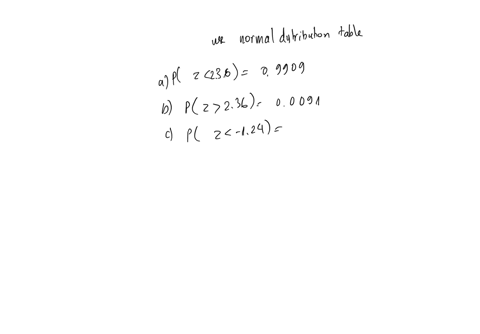 use normal dytribution table
a) P( z<2.36)= 0.9909
b) P( z > 2.36)= 0.0091
c) P( z < -1.24)=